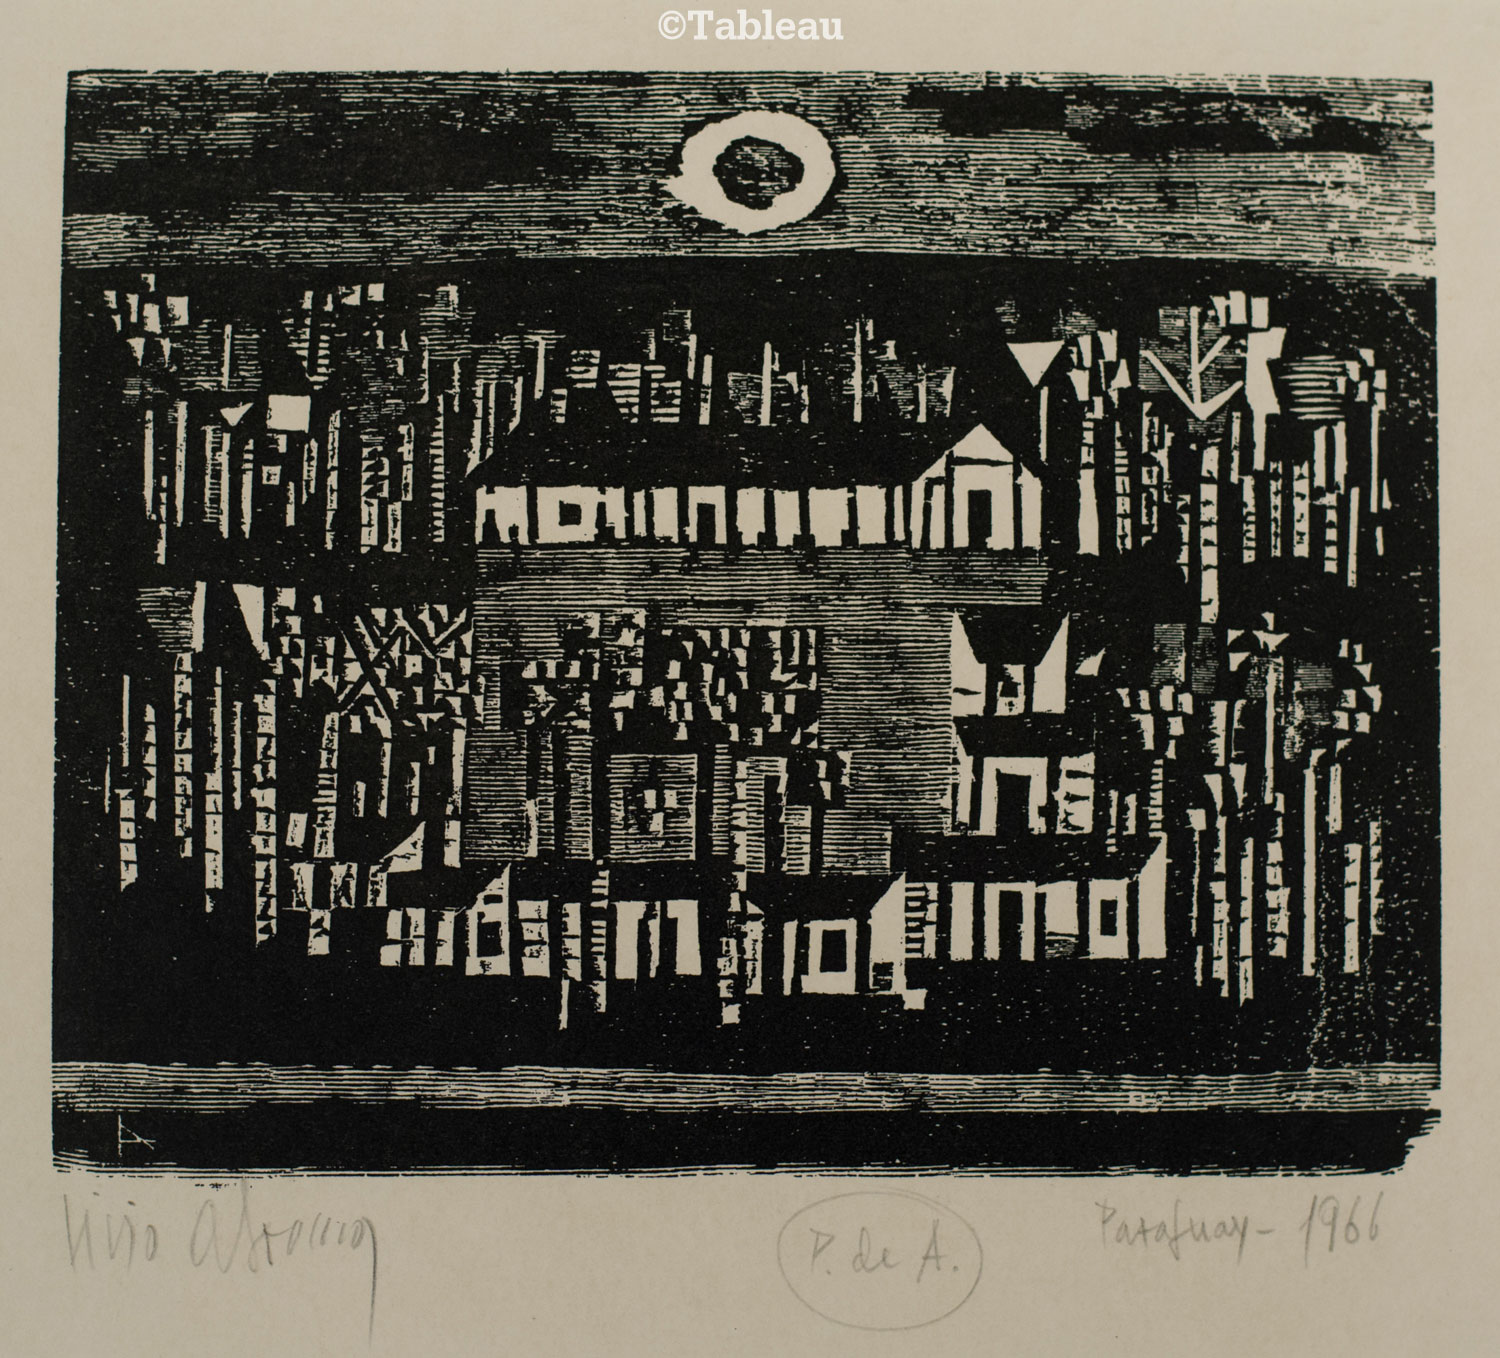 ©Tableau
Livio Abramo
P. de A.
Paraguay - 1966